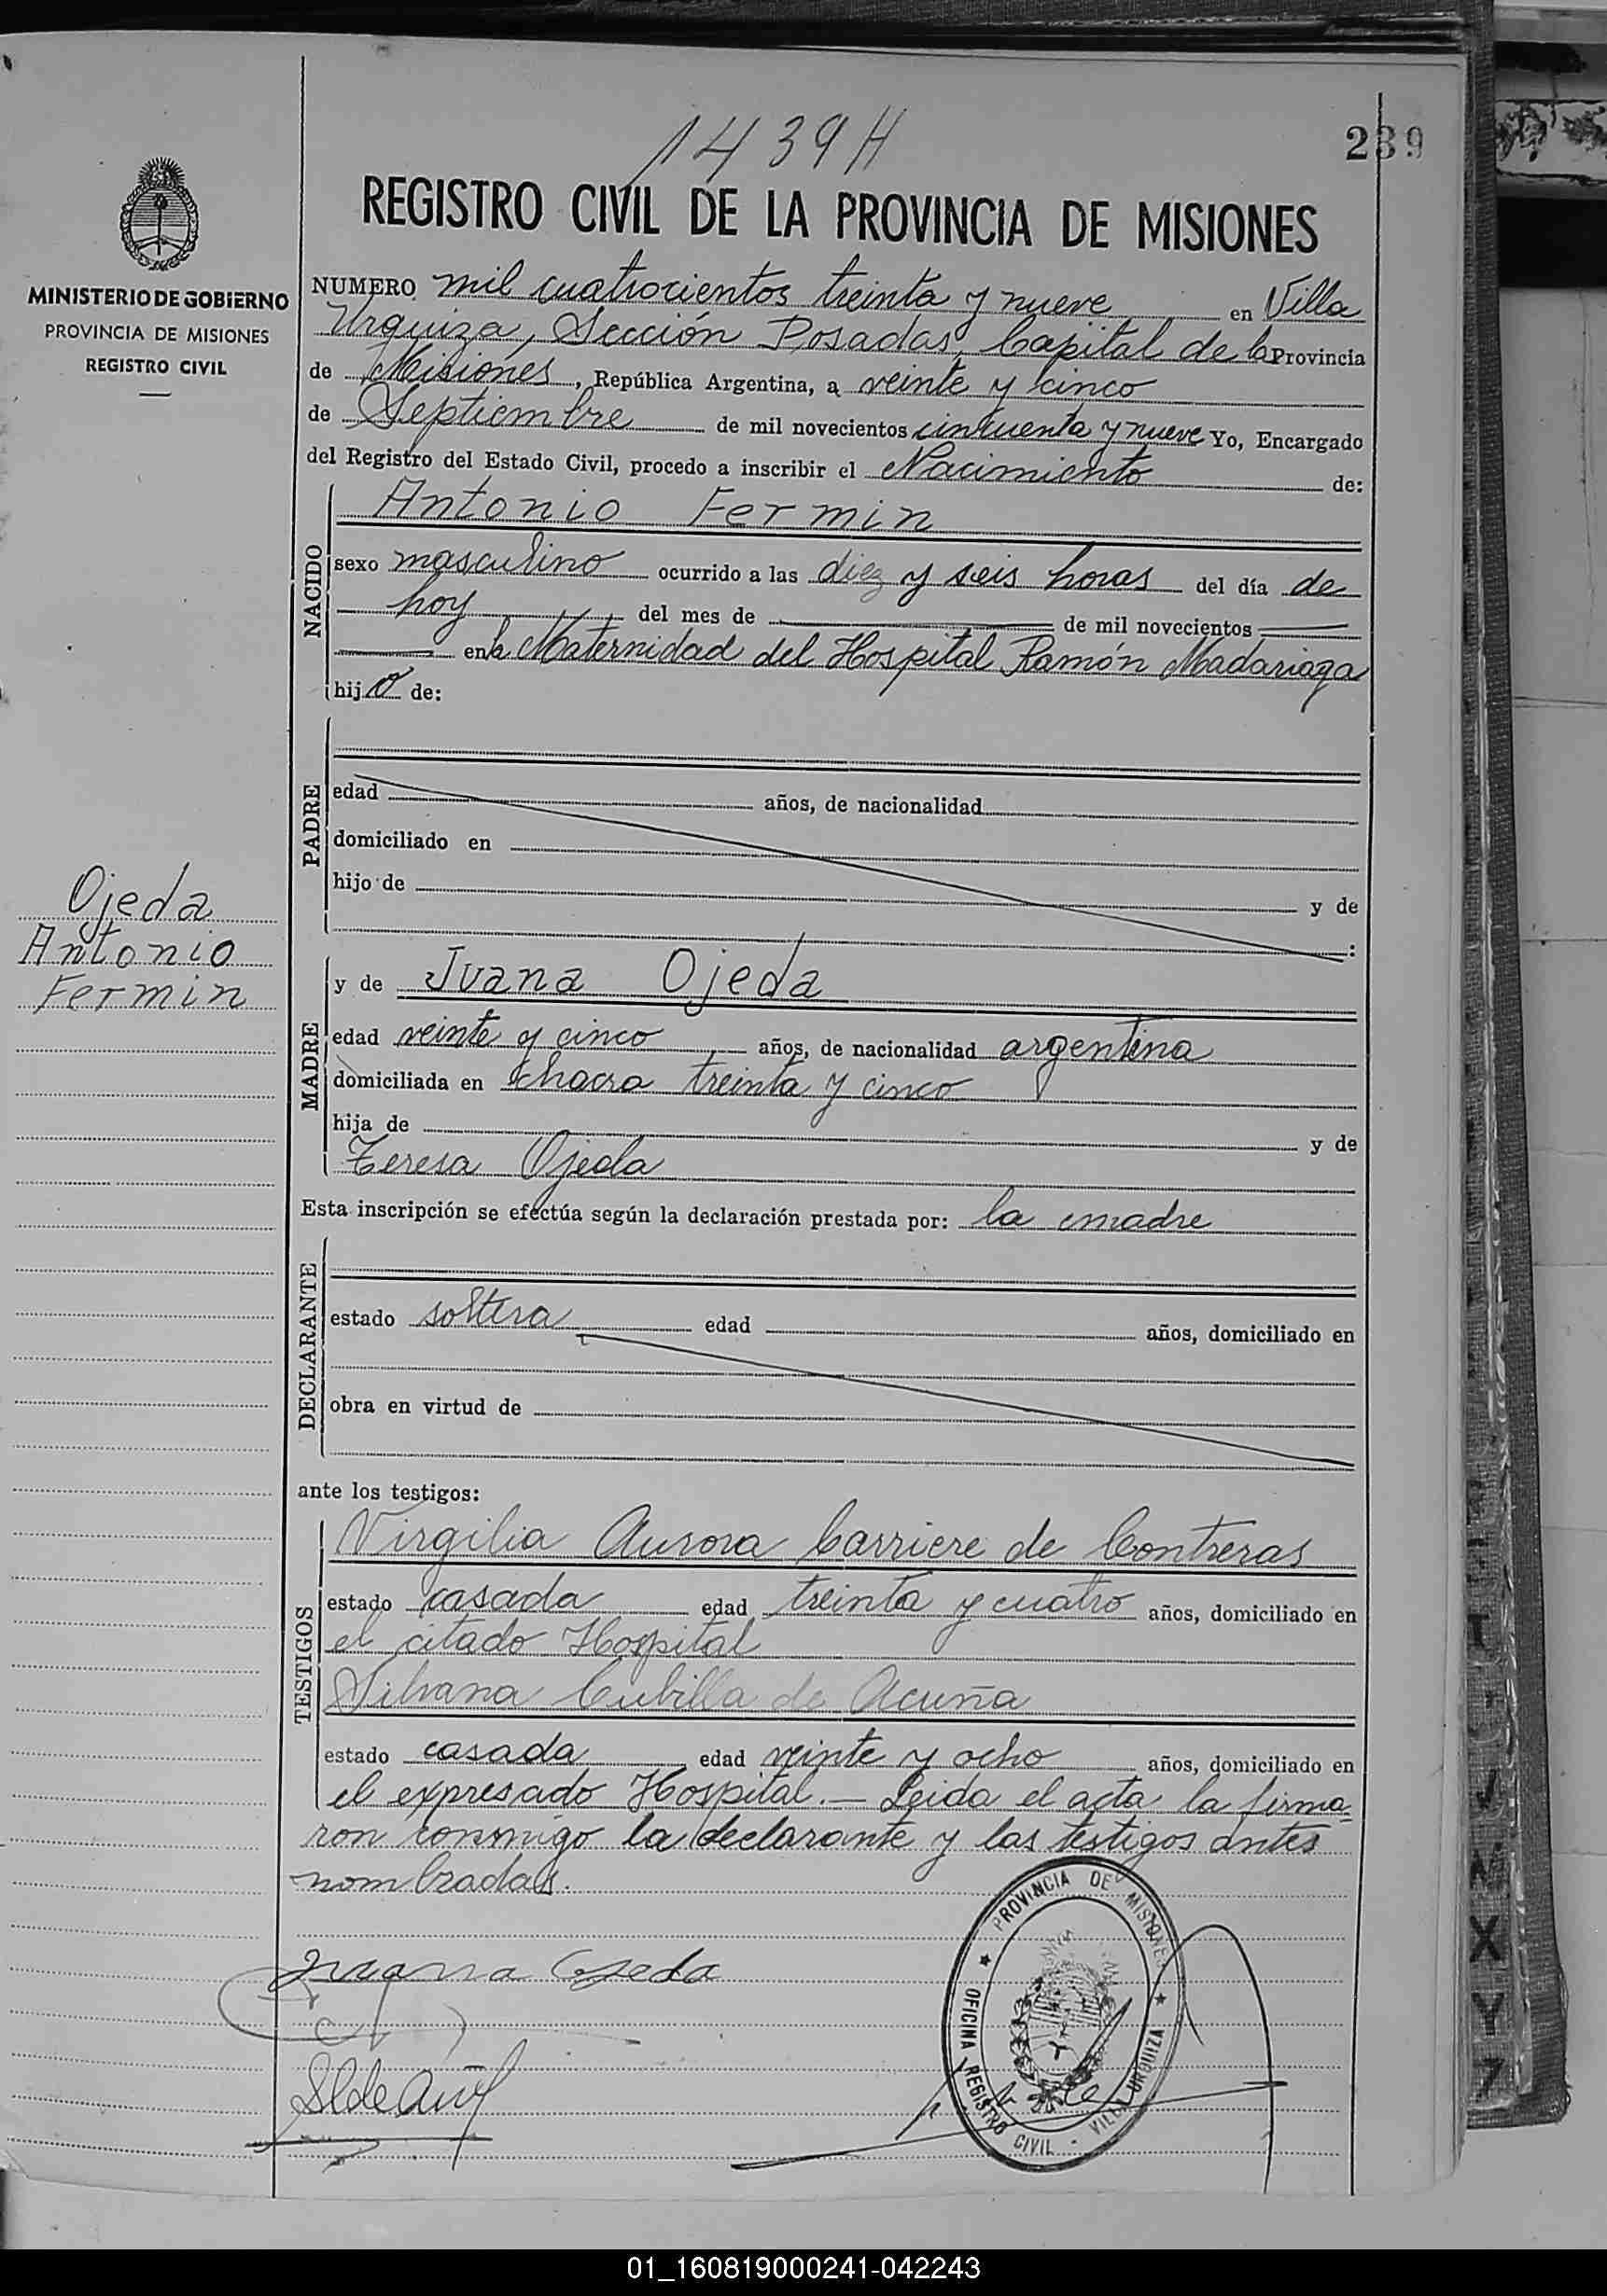 1439H
239
REGISTRO CIVIL DE LA PROVINCIA DE MISIONES
MINISTERIO DE GOBIERNO
PROVINCIA DE MISIONES
REGISTRO CIVIL
NUMERO mil cuatrocientos treinta y nueve en Villa
Urquiza, Sección Posadas, Capital de la Provincia
de Misiones, República Argentina, a veinte y cinco
de Septiembre de mil novecientos cincuenta y nueve Yo, Encargado
del Registro del Estado Civil, procedo a inscribir el Nacimiento de:
NACIDO
Antonio Fermin
sexo masculino ocurrido a las diez y seis horas del día de
hoy del mes de de mil novecientos
en la Maternidad del Hospital Ramón Madariaga
hijo de:
PADRE
edad años, de nacionalidad
domiciliado en
hijo de y de
:
Ojeda
Antonio
Fermin
MADRE
y de Juana Ojeda
edad veinte y cinco años, de nacionalidad argentina
domiciliada en chacra treinta y cinco
hija de y de
Teresa Ojeda
Esta inscripción se efectúa según la declaración prestada por: la madre
DECLARANTE
estado soltera edad años, domiciliado en
obra en virtud de
ante los testigos:
TESTIGOS
Virgilia Aurora Carriere de Contreras
estado casada edad treinta y cuatro años, domiciliado en
el citado Hospital
Silvana Cubilla de Acuña
estado casada edad veinte y ocho años, domiciliado en
el expresado Hospital.— Leida el acta la firma-
ron conmigo la declarante y las testigos antes
nombradas.
Juana Ojeda
PROVINCIA DE MISIONES
OFICINA REGISTRO CIVIL - VILLA URQUIZA
01_160819000241-042243